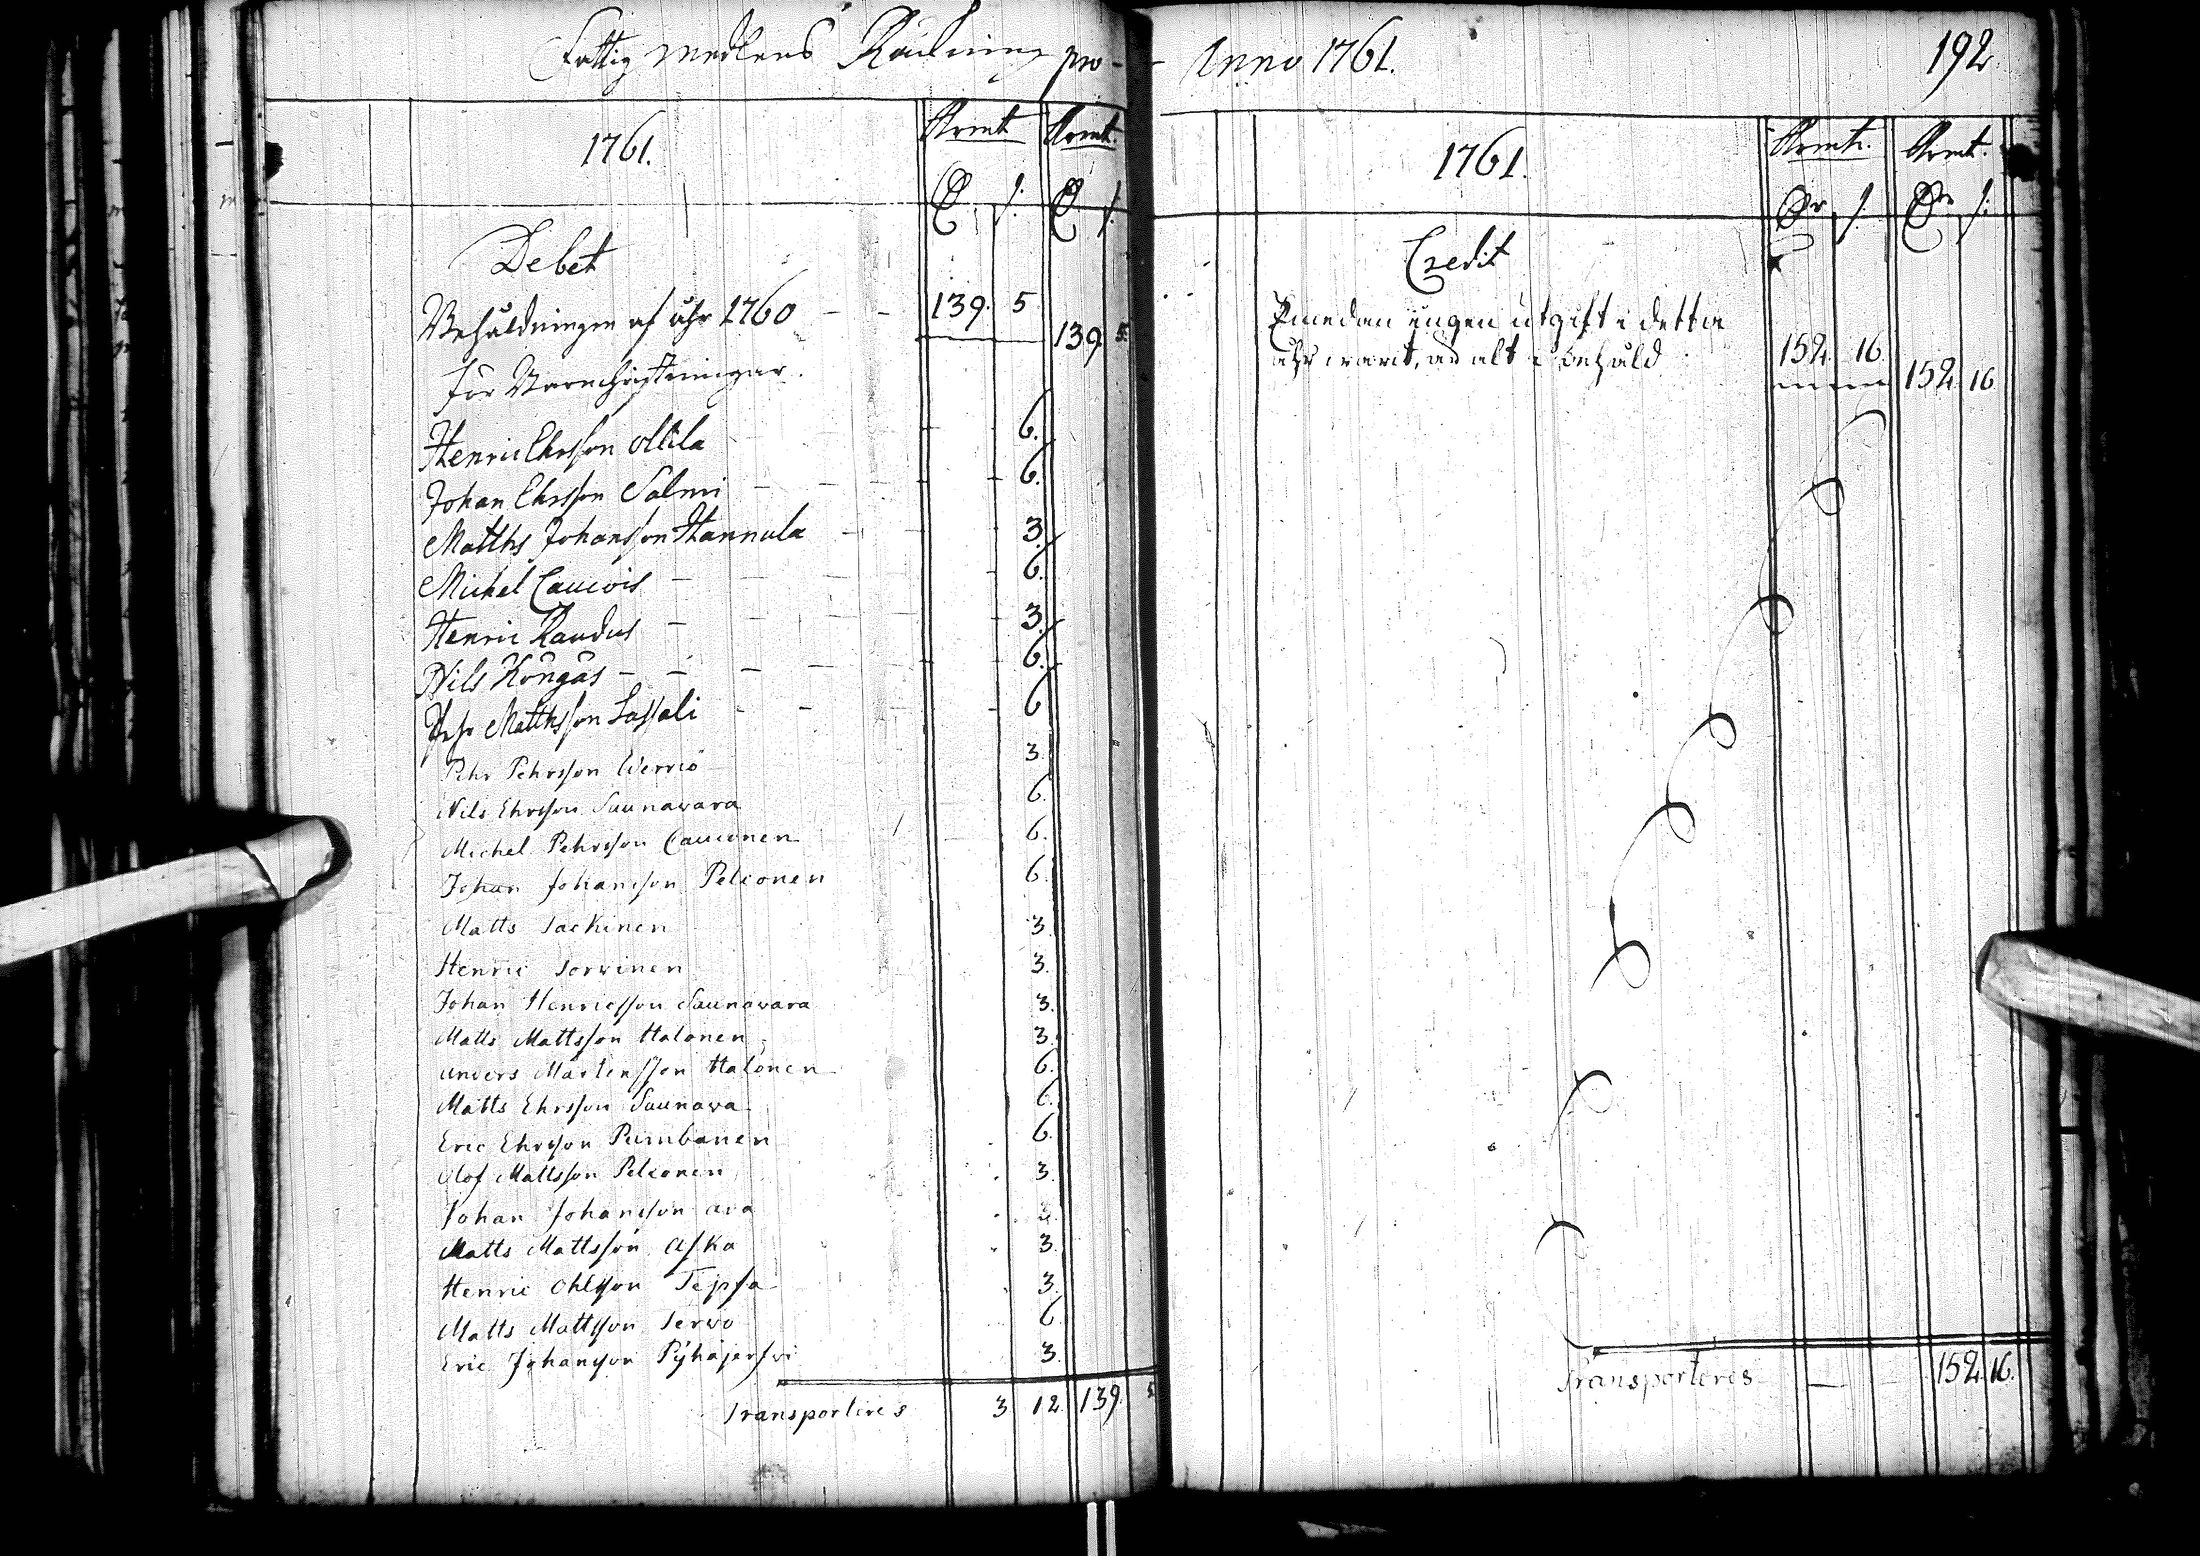 Fattig Medlens Räkning pro - - Anno 1761.
192
1761.
Krmt Krmt.
Debet
Behåldningen af åhr 1760 - - 139. 5
139. 5.
för
Henric Ehrsson Ollila 6.
Johan Ehrsson Salmi - - 6.
Matths Johansson Hannula - 3.
Michel Caucois - - - - 6.
Henric Raudus - - - - 3.
Nils Köngäs - - - - 6.
Pehr Matthsson Lassali - - 6
Pehr Pehrsson Werrio 3.
Nils Ehrsson Saunawara 6.
Michel Pehrsson Caucinen 6.
Johan Johansson Pelconen 6.
Matts Jackinen 3.
Henric Sorvinen 3.
Johan Henricsson Saunawara 3.
Matts Mattsson Halonen 3.
Anders Mårtensson Halonen 6.
Matts Ehrsson Saunawa 6.
Eric Ehrsson Pumbanen 6.
Olof Mattsson Pelconen 3.
Johan Johansson ava 3.
Matts Mattsson Aska 3.
Henric Ohlsson Tepsa 3.
Matts Mattsson Serwo 6
Eric Johansson Pyhäjerfwi 3.
Transporteres 3 12. 139. 5.
1761.
Krmt. Krmt.
Credit
Emedan ingen utgift i detta
åhr warit, är alt i behåld 152. 16.
152 16
Transporteres — 152. 16.